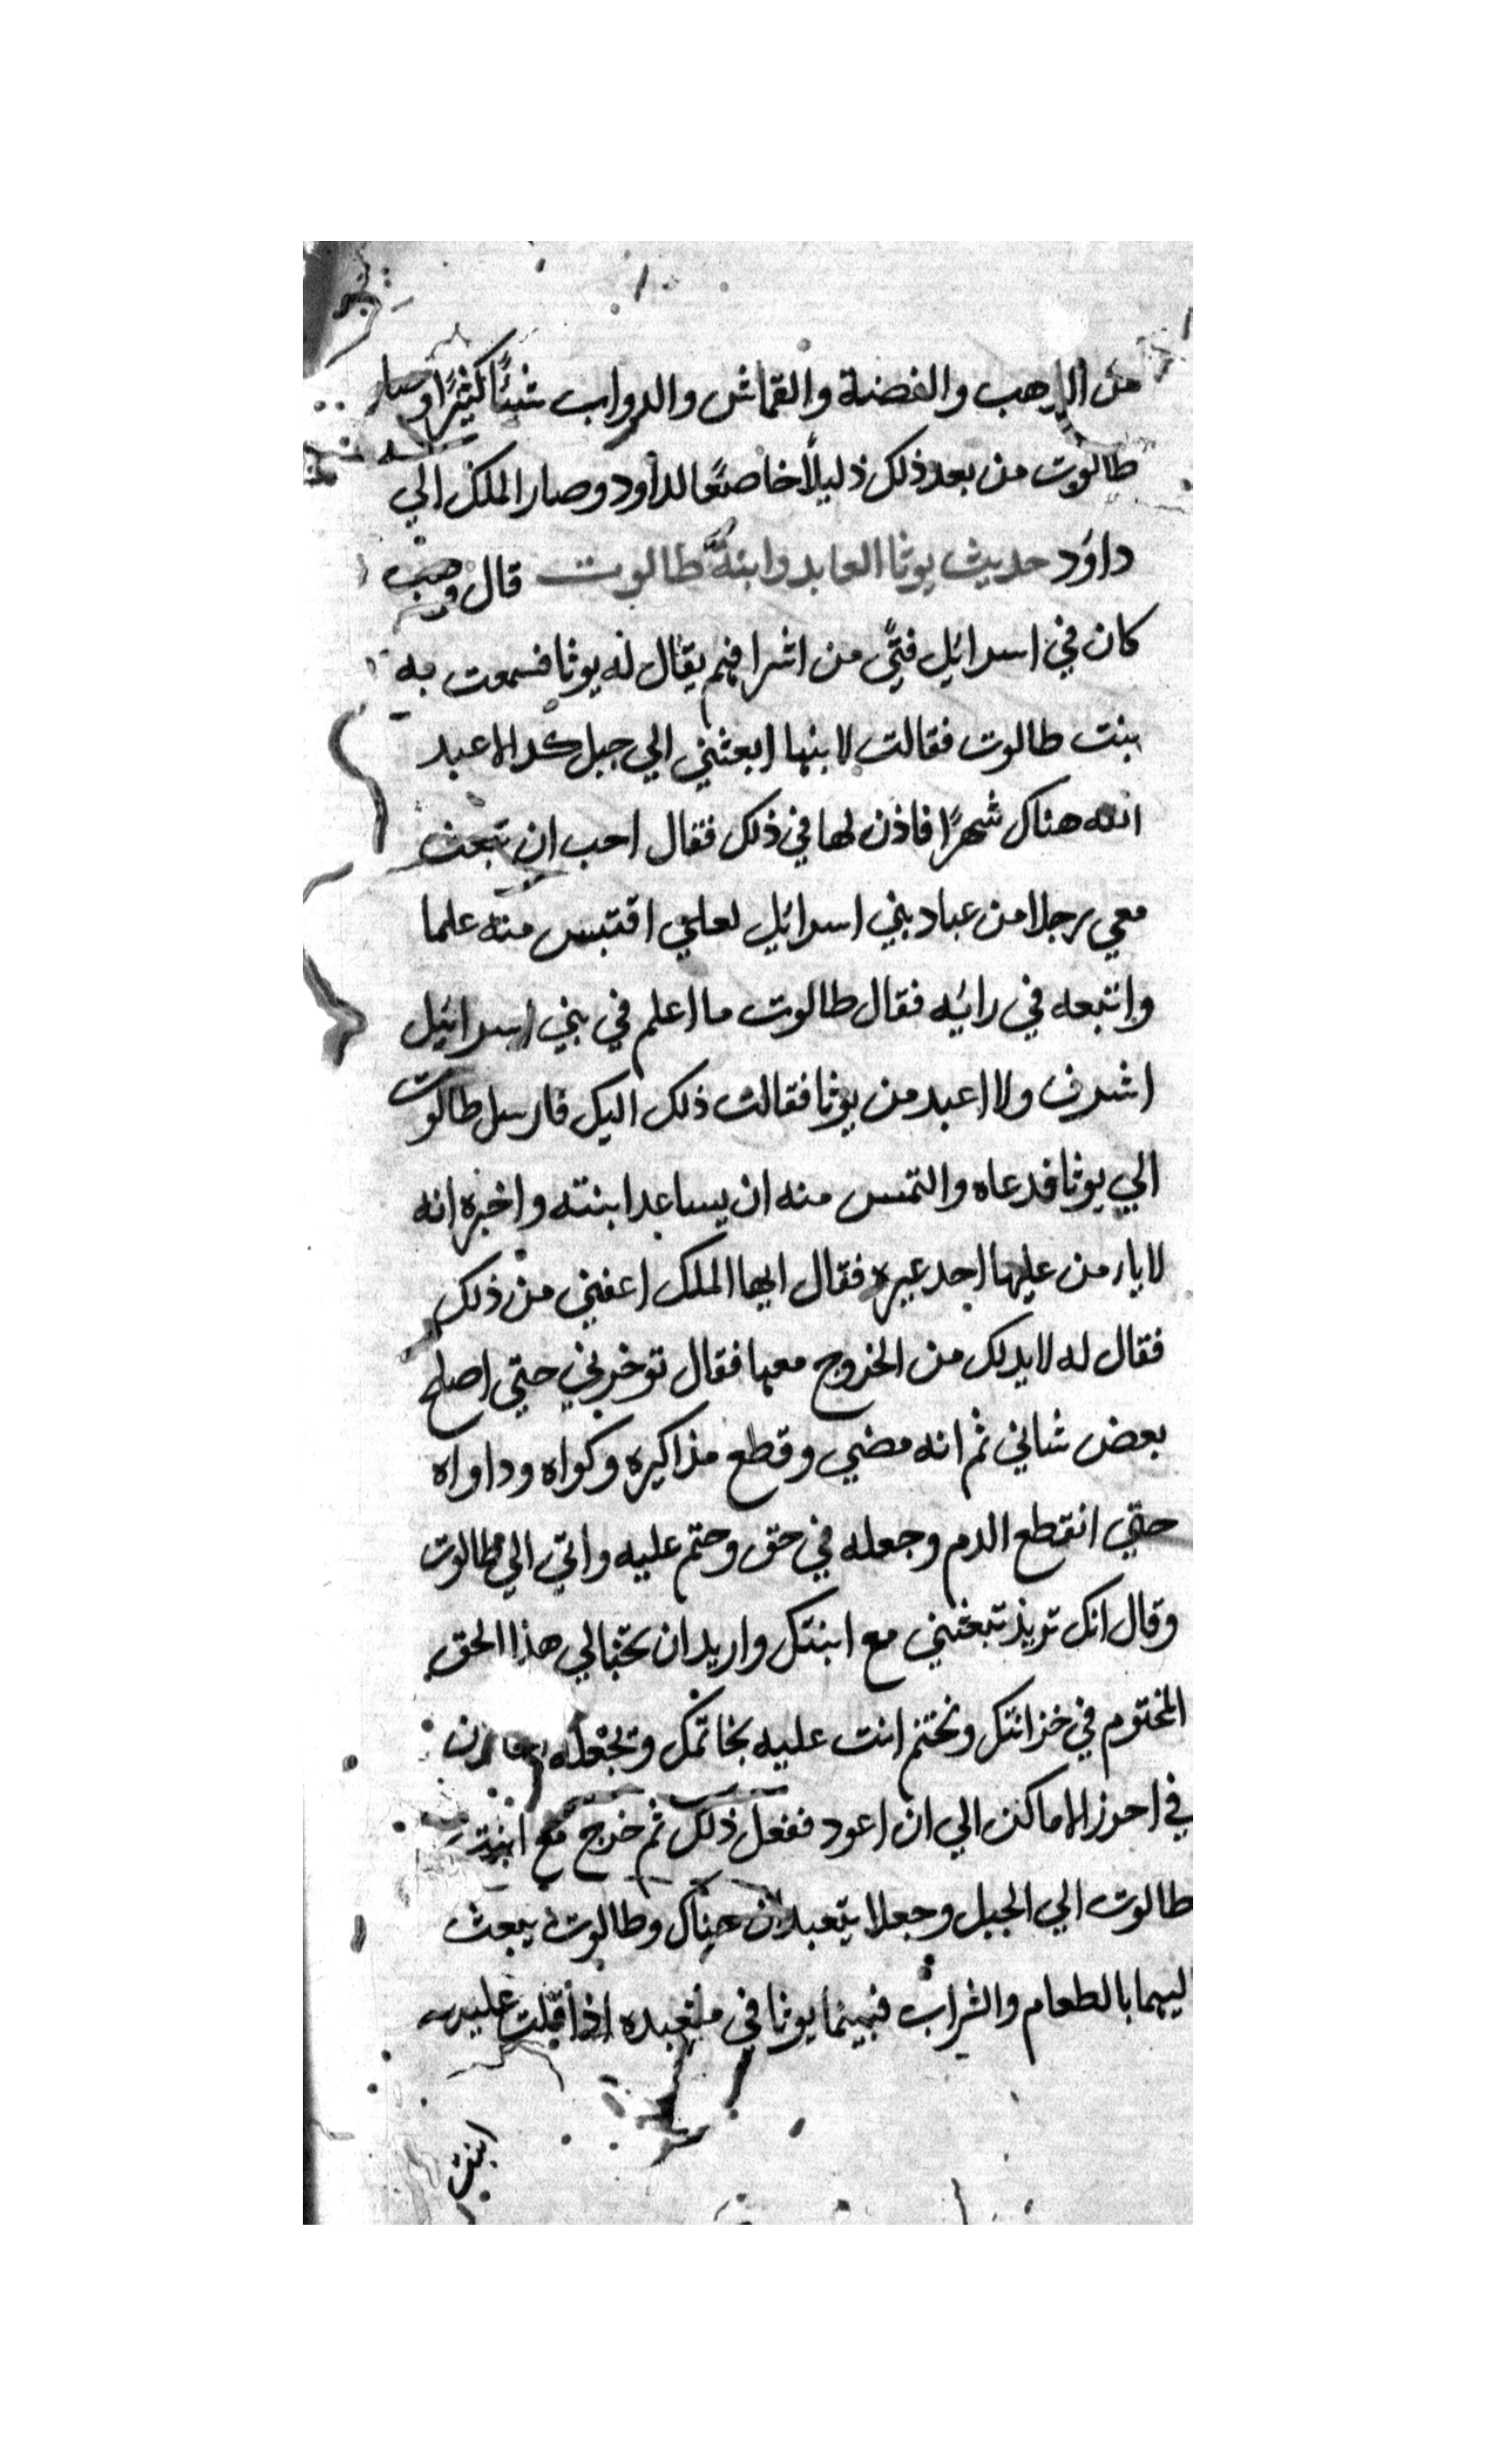 من الذهب والفضة والقماش والدواب شيئًا كثيرًا وصار
طالوت من بعد ذلك ذليلًا خاضعًا لداود وصار الملك الي
داوَد حديث يوثا العابد وابنة طالوت قال وهب
كان في اسرائيل فتًي من اشرافهم يقال له يوثا فسمعت به
بنت طالوت فقالت لابنها ابعثني الي جبل كدا لاعبد
الله هناك شهرًا فاذن لها في ذلك فقال احب ان تبعث
معي رجلا من عباد بني اسرائيل لعلي اقتبس منه علما
واتبعه في رايئه فقال طالوت ما اعلم في بني اسرائيل
اشرف ولا اعبد من يوثا فقالت ذلك اليك فارسل طالوت
الي يوثا فدعاه والتمس منه ان يساعد ابنته واخبره انه
لا يامن عليها احد غيره فقال ايها الملك اعفني من ذلك
فقال له لابد لك من الخروج معها فقال توخرني حتي اصلح
بعض شاني ثم انه مضي وقطع مذاكيره وكواه وداواه
حتي انقطع الدم وجعله في حق وختم عليه واتي الي طالوت
وقال انك تريد تبعثني مع ابنتك واريد ان تخبالي هذا الحق
المختوم في خزانتك وتختم انت عليه بخاتمك وتجعله
في احرز الاماكن الي ان اعود ففعل ذلك ثم خرج مع ابنت
طالوت الي الجبل وجعلا يتعبدان هناك وطالوت يبعث
ليهما بالطعام والشراب فبينما يوثا في متعبده اذ اقبلت عليه
ابنت